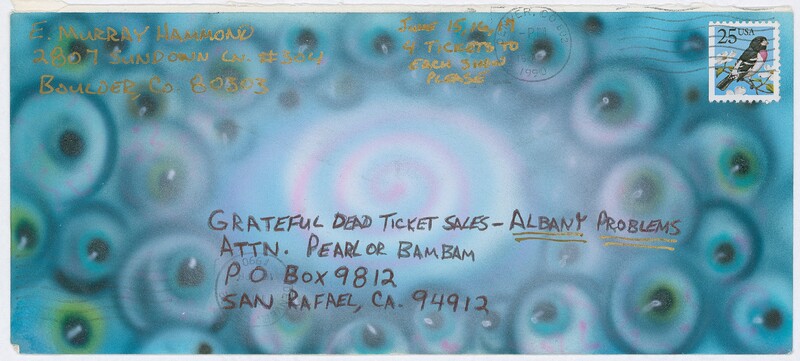 E. Murray Hammond
2807 Sundown Ln. #304
Boulder, Co 80303
June 15, 16, 17
4 Tickets to
Each Show
Please
25 USA
1990
Grateful Dead Ticket Sales - Albany Problems
Attn. Pearl or BamBam
P.O. Box 9812
San Rafael, Ca. 94912